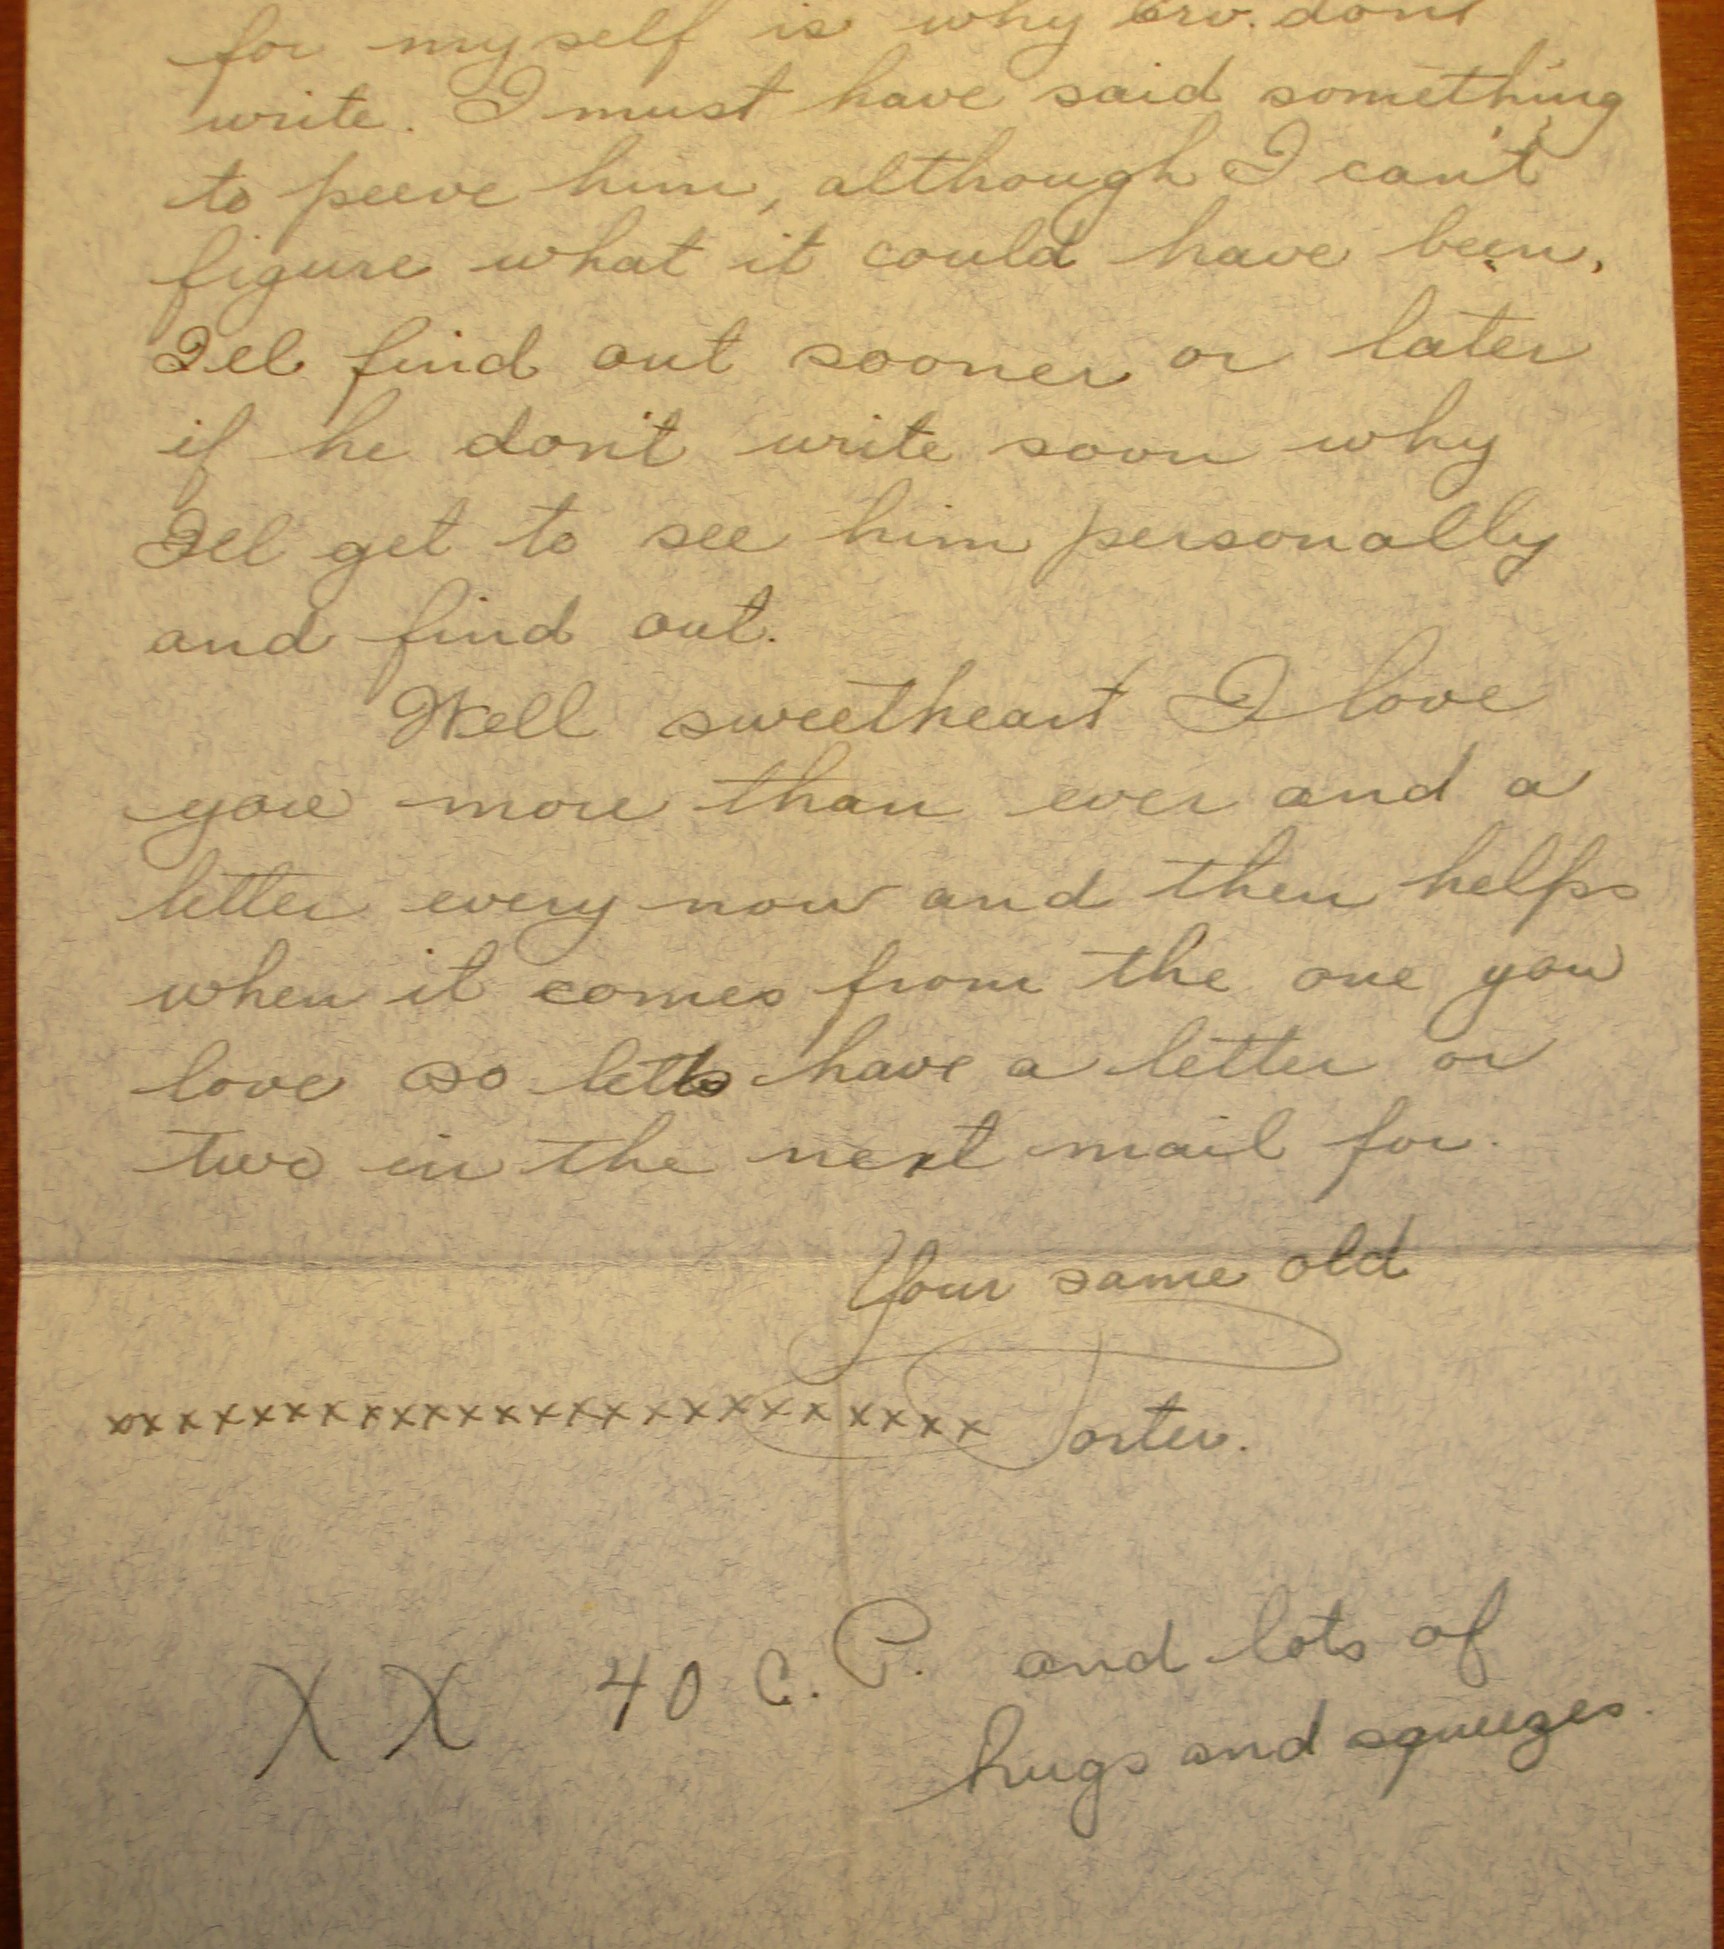 for myself is why Erv. dont
write. I must have said something
to peeve him, although I can't
figure what it could have been.
I'el find out sooner or later
if he don't write soon why
I'el get to see him personally
and find out.
Well sweetheart I love
you more than ever and a
letter every now and then helps
when it comes from the one you
love so lets have a letter or
two in the next mail for.
Your same old
xxxxxxxxxxxxxxxxxxxxxxxxx Porter.
X X 40 C. P. and lots of
hugs and squeezes.